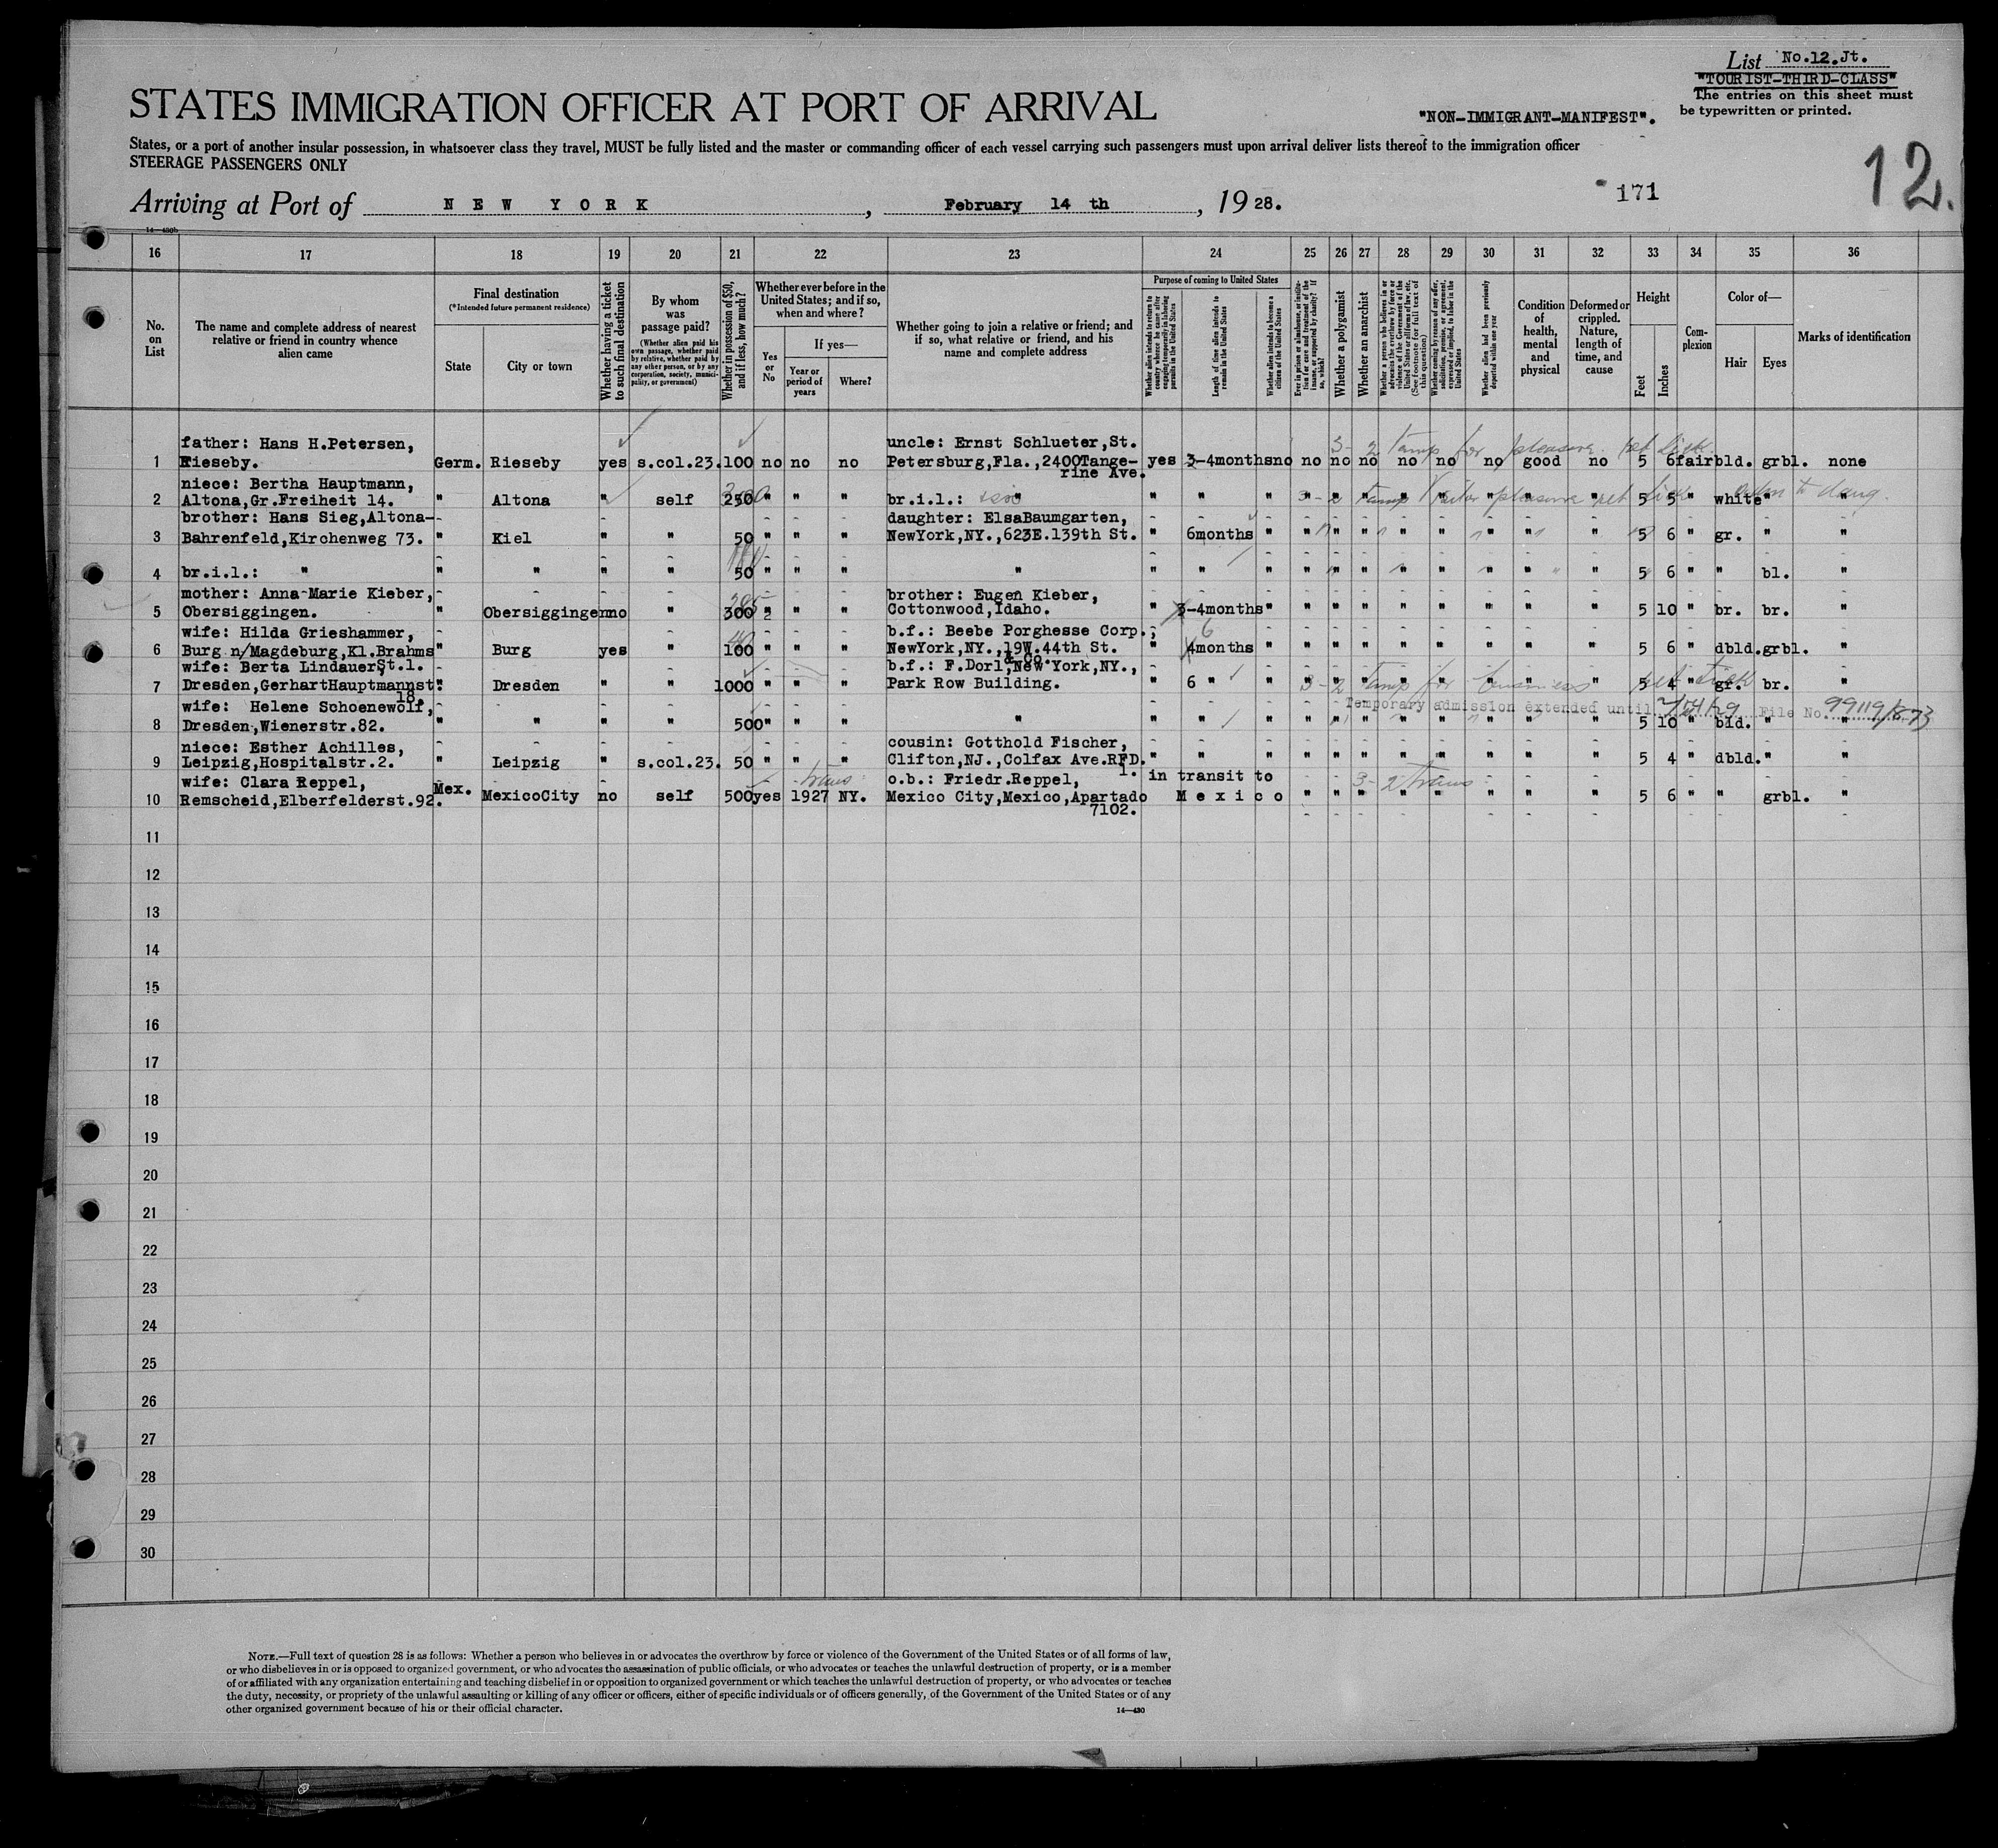 List No.12.Jt.
"TOURIST-THIRD-CLASS"
The entries on this sheet must
be typewritten or printed.
STATES IMMIGRATION OFFICER AT PORT OF ARRIVAL
"NON-IMMIGRANT-MANIFEST".
States, or a port of another insular possession, in whatsoever class they travel, MUST be fully listed and the master or commanding officer of each vessel carrying such passengers must upon arrival deliver lists thereof to the immigration officer
STEERAGE PASSENGERS ONLY
12.
171
Arriving at Port of NEW YORK, February 14 th, 1928.
14—430b
16 17 18 19 20 21 22 23 24 25 26 27 28 29 30 31 32 33 34 35 36
No. on List
The name and complete address of nearest relative or friend in country whence alien came
Final destination
(*Intended future permanent residence)
State
City or town
Whether having a ticket to such final destination
By whom was passage paid?
(Whether alien paid his own passage, whether paid by relative, whether paid by any other person, or by any corporation, society, municipality, or government)
Whether in possession of $50, and if less, how much?
Whether ever before in the United States; and if so, when and where?
Yes or No
If yes—
Year or period of years
Where?
Whether going to join a relative or friend; and if so, what relative or friend, and his name and complete address
Purpose of coming to United States
Whether alien intends to return to country whence he came after engaging temporarily in laboring pursuits in the United States
Length of time alien intends to remain in the United States
Whether alien intends to become a citizen of the United States
Ever in prison or almshouse, or institution for care and treatment of the insane, or supported by charity? If so, which?
Whether a polygamist
Whether an anarchist
Whether a person who believes in or advocates the overthrow by force or violence of the Government of the United States or all forms of law, etc. (See footnote for full text of this question)
Whether coming by reason of any offer, solicitation, promise, or agreement, expressed or implied, to labor in the United States
Whether alien had been previously deported within one year
Condition of health, mental and physical
Deformed or crippled. Nature, length of time, and cause
Height
Feet
Inches
Complexion
Color of—
Hair
Eyes
Marks of identification
father: Hans H.Petersen, uncle: Ernst Schlueter,St.
1 Rieseby. Germ. Rieseby yes s.col.23. 100 no no no Petersburg,Fla.,2400Tange- yes 3-4months no no no no no no no good no 5 6 fair bld. grbl. none
rine Ave.
3-2 Temp for pleasure
niece: Bertha Hauptmann,
2 Altona,Gr.Freiheit 14. " Altona " self 250 " " " br.i.l.: " " " " " " " " " " " " 5 5 " white " "
brother: Hans Sieg,Altona- daughter: ElsaBaumgarten,
3 Bahrenfeld,Kirchenweg 73. " Kiel " " 50 " " " NewYork,NY.,623E.139th St. " 6months " " " " " " " " " 5 6 " gr. " "
4 br.i.l.: " " " " " 50 " " " " " " " " " " " " " " " 5 6 " " bl. "
mother: Anna-Marie Kieber, brother: Eugen Kieber,
5 Obersiggingen. " Obersiggingen no " 300 " " " Cottonwood,Idaho. " 3-4months " " " " " " " " " 5 10 " br. br. "
wife: Hilda Grieshammer, b.f.: Beebe Porghesse Corp.,
6
6 Burg n/Magdeburg,Kl.Brahms " Burg yes " 100 " " " NewYork,NY.,19W.44th St. " 4months " " " " " " " " " 5 6 " dbld. grbl. "
St.1.
wife: Berta Lindauer, b.f.: F.Dorl & Co.,New York,NY.,
7 Dresden,GerhartHauptmannst. " Dresden " " 1000 " " " Park Row Building. " 6 " " " " " " " " " " 5 4 " gr. br. "
18.
3-2 Temp for business
Temporary admission extended until File No.
wife: Helene Schoenewolf,
8 Dresden,Wienerstr.82. " " " " 500 " " " " " " " " " " " " " " " 5 10 " bld. " "
niece: Esther Achilles, cousin: Gotthold Fischer,
9 Leipzig,Hospitalstr.2. " Leipzig " s.col.23. 50 " " " Clifton,NJ.,Colfax Ave.RFD. " " " " " " " " " " " 5 4 " dbld. " "
1.
wife: Clara Reppel, trans o.b.: Friedr.Reppel, in transit to 3-2 trans
10 Remscheid,Elberfelderst.92. Mex. MexicoCity no self 500 yes 1927 NY. Mexico City,Mexico,Apartado Mexico " " " " " " " " 5 6 " " grbl. "
7102.
11
12
13
14
15
16
17
18
19
20
21
22
23
24
25
26
27
28
29
30
NOTE.—Full text of question 28 is as follows: Whether a person who believes in or advocates the overthrow by force or violence of the Government of the United States or of all forms of law,
or who disbelieves in or is opposed to organized government, or who advocates the assassination of public officials, or who advocates or teaches the unlawful destruction of property, or is a member
of or affiliated with any organization entertaining and teaching disbelief in or opposition to organized government or which teaches the unlawful destruction of property, or who advocates or teaches
the duty, necessity, or propriety of the unlawful assaulting or killing of any officer or officers, either of specific individuals or of officers generally, of the Government of the United States or of any
other organized government because of his or their official character.
14—430